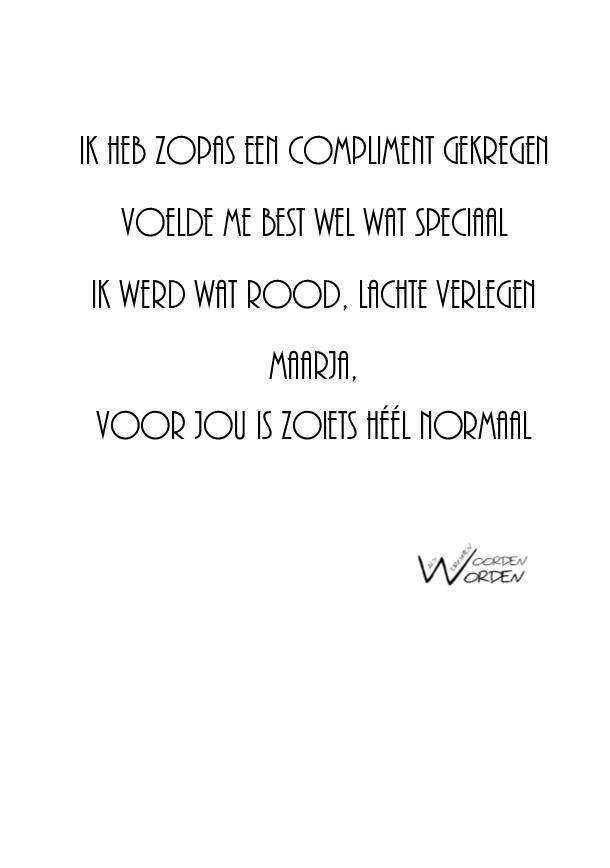 IK HEB ZOPAS EEN COMPLIMENT GEKREGEN
VOELDE ME BEST WEL WAT SPECIAAL
IK WERD WAT ROOD, LACHTE VERLEGEN
MAARJA,
VOOR JOU IS ZOIETS HÉÉL NORMAAL
ALS DROMEN WOORDEN
WORDEN